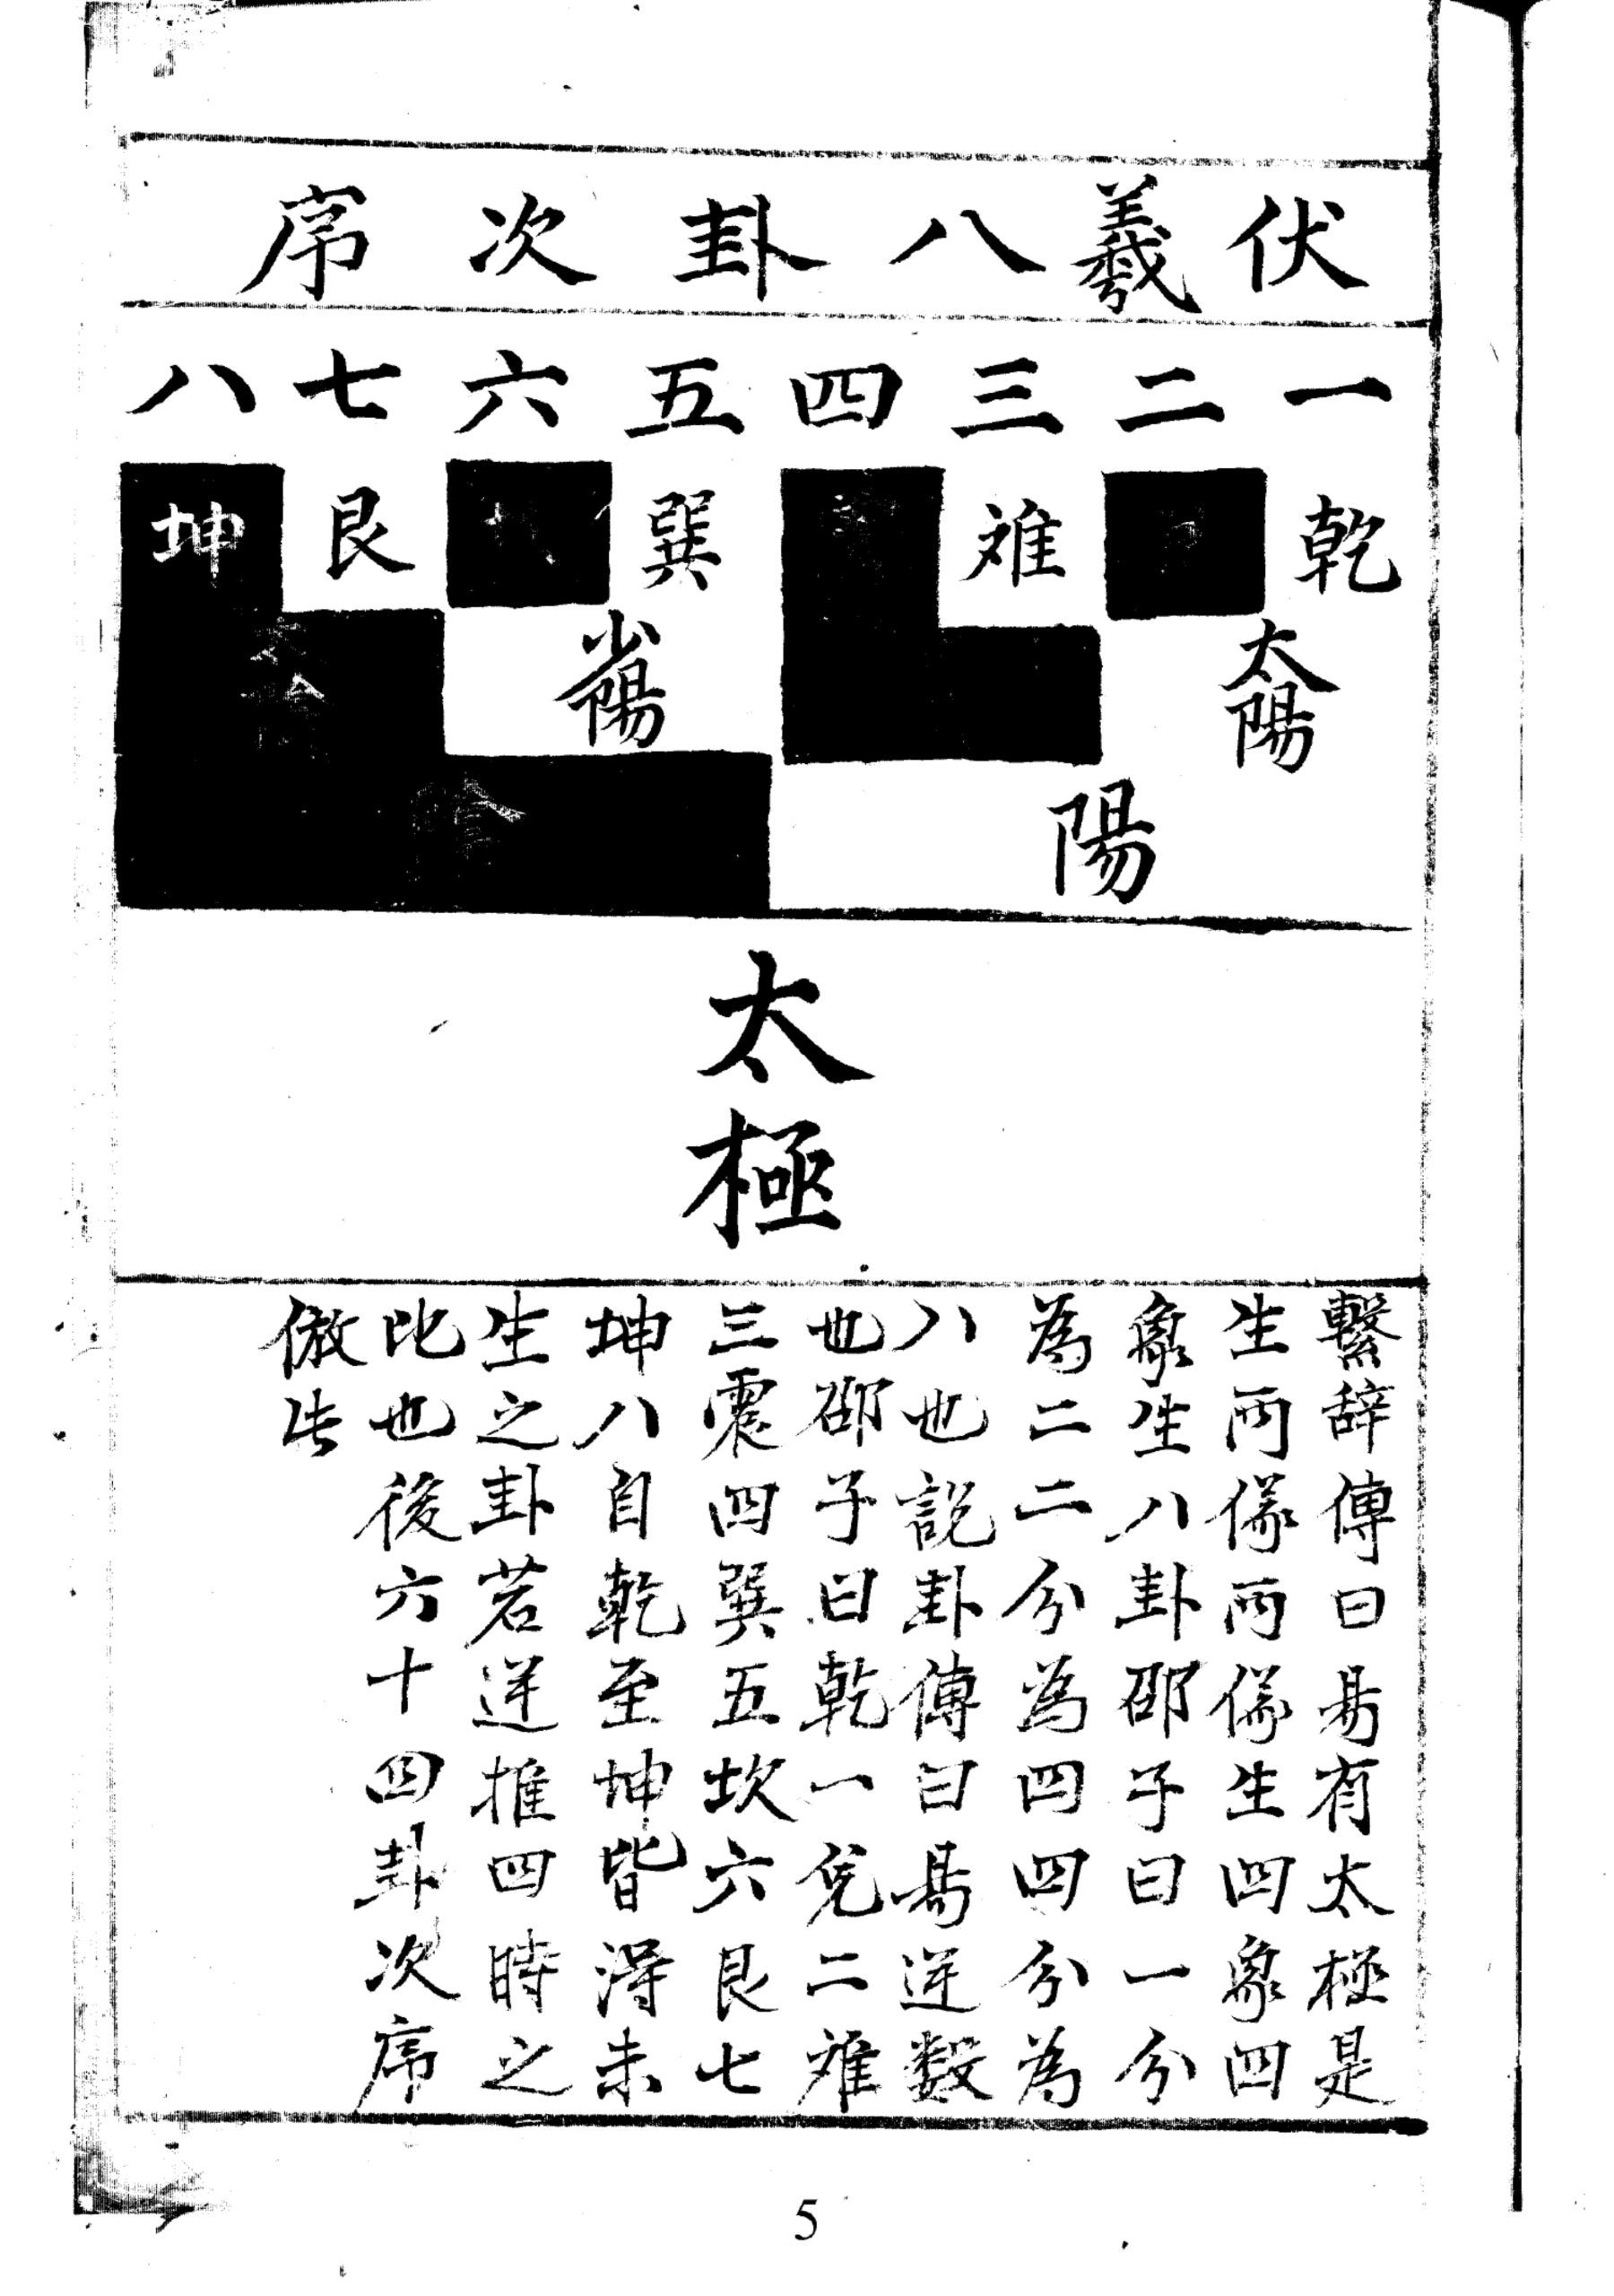 伏羲八卦次序
一二三四五六七八
乾 𮥼 巽 艮 坤
太陽 少陽
陽 陰
太極
繫辞傳曰易有太極是
生両儀両儀生四象四
象生八卦邵子曰一分
為二二分為四四分為
八也説卦傳曰易逆数
也邵子曰乾一兌二𮥼
三震四巽五坎六艮七
坤八自乾至坤皆淂未
生之卦若逆推四時之
比也後六十四卦次序
倣此
5